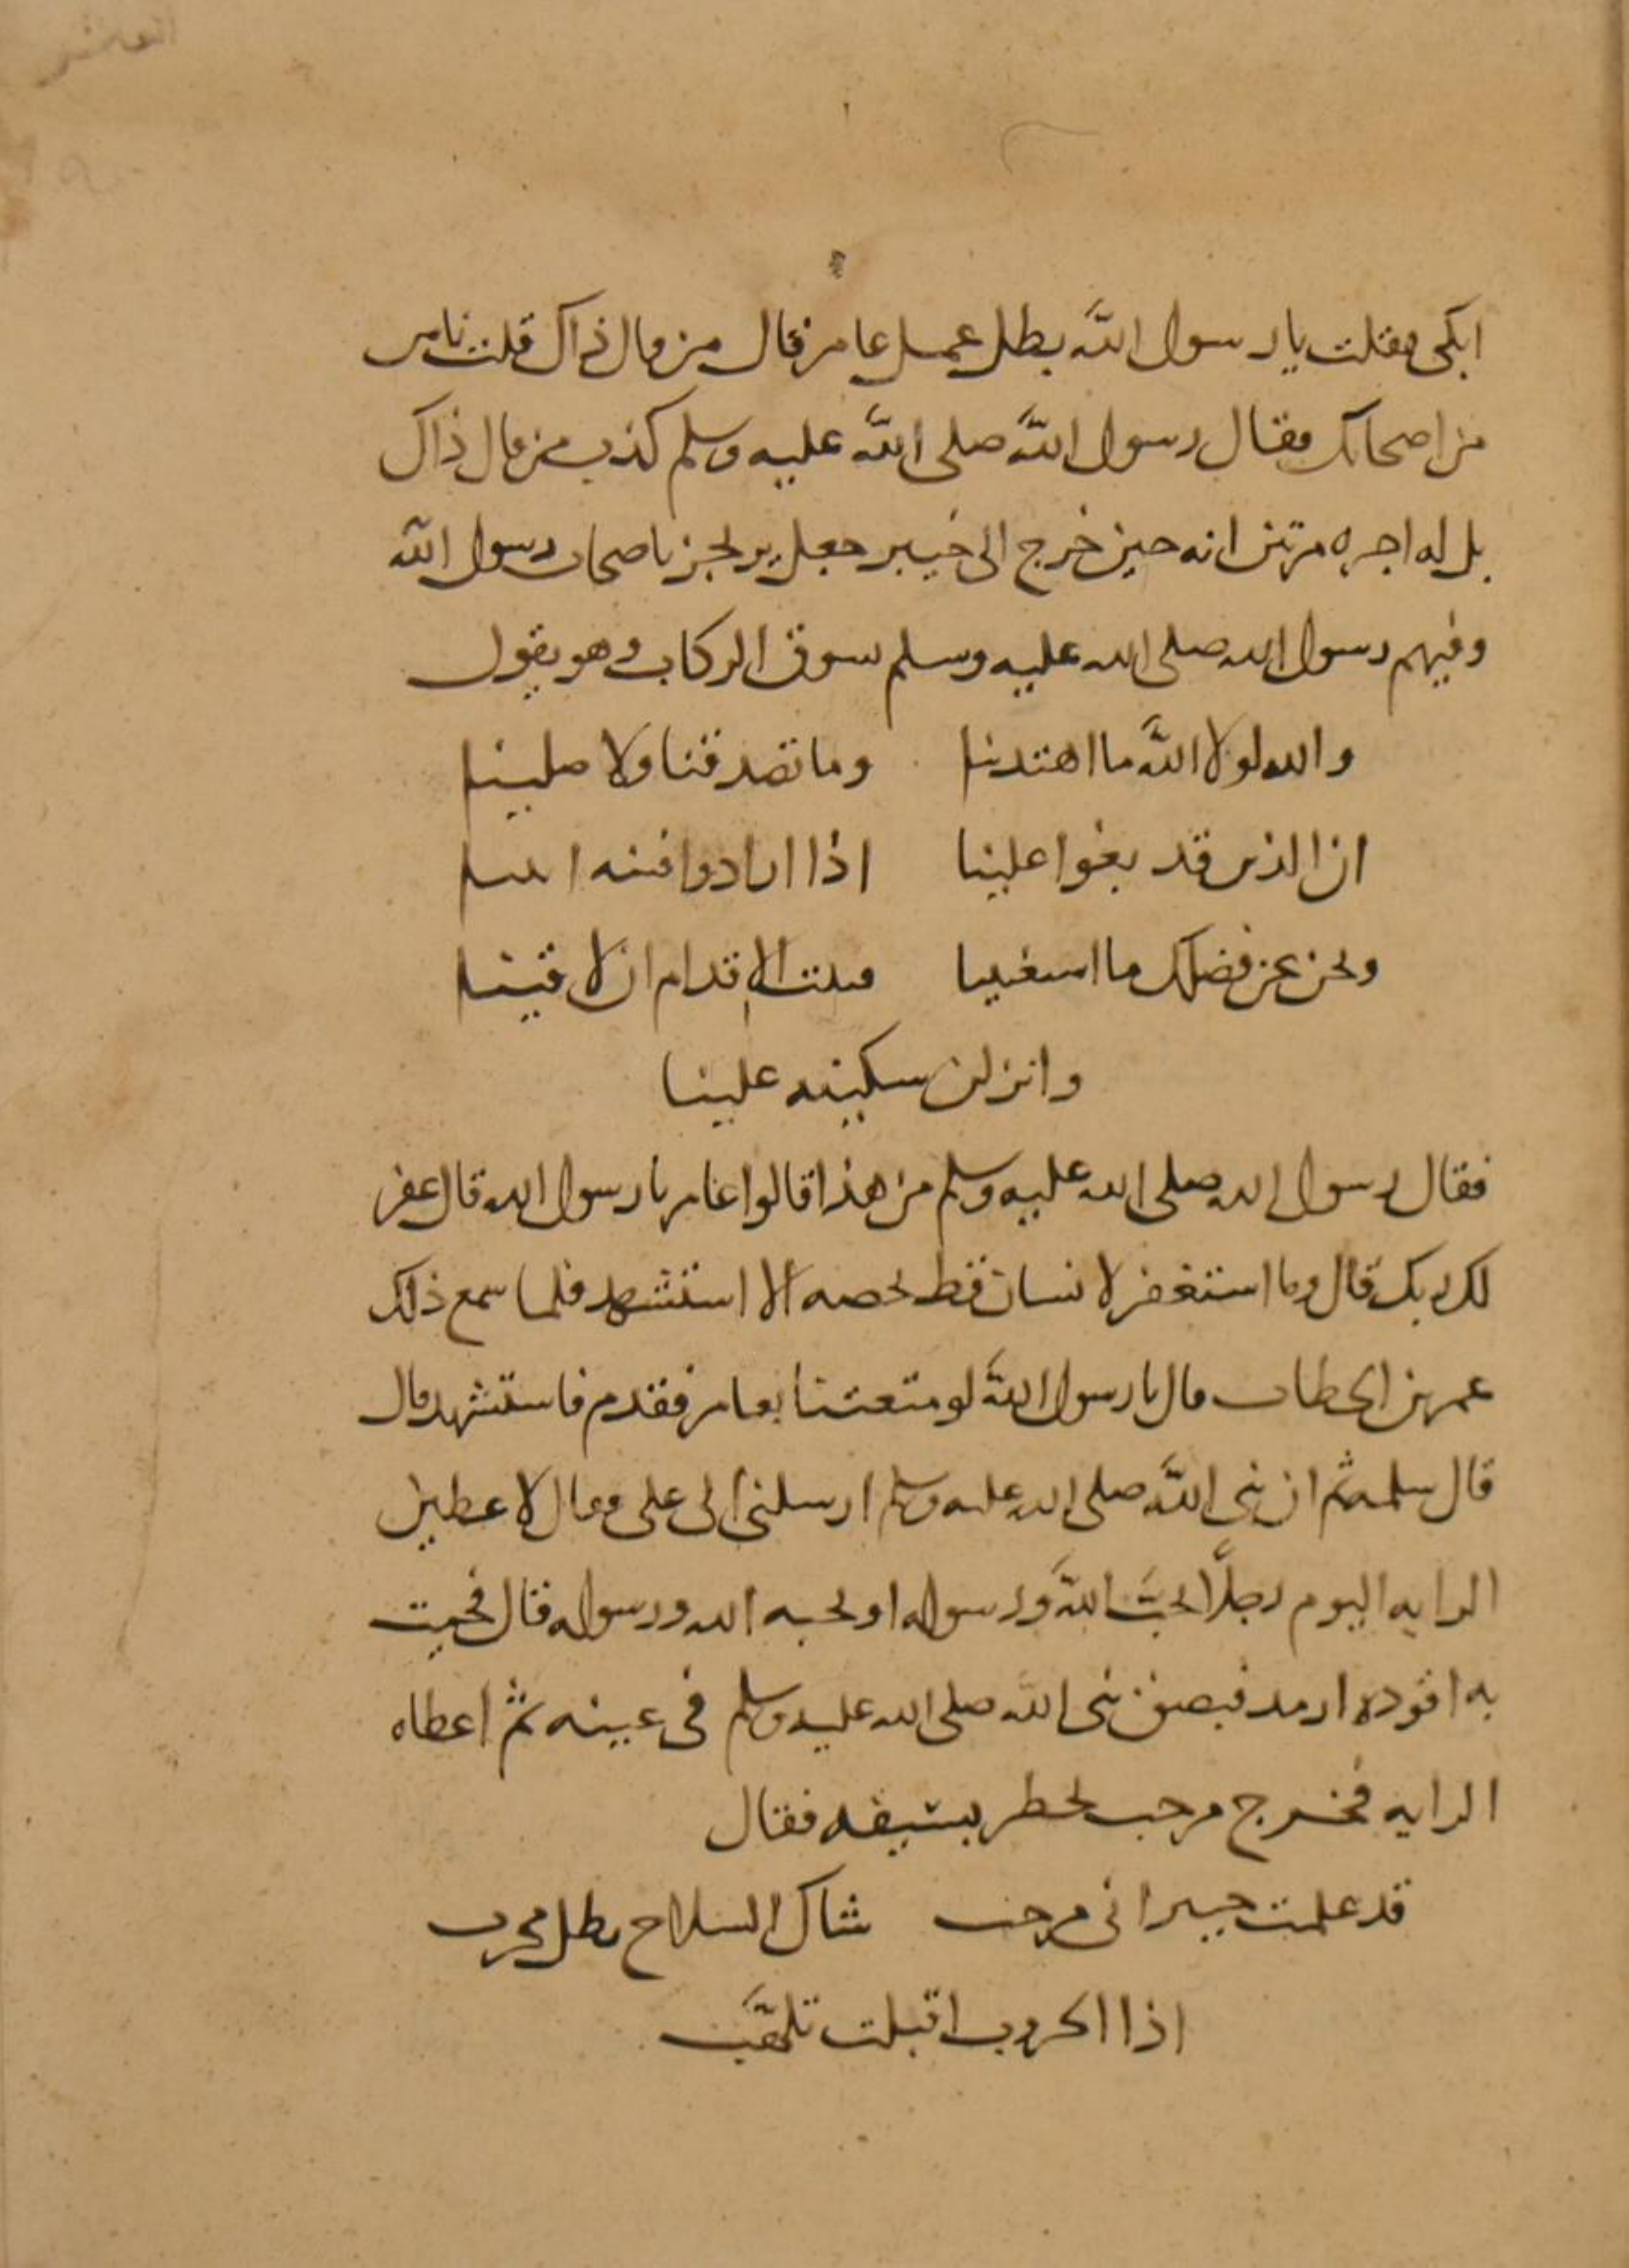 ابكى فقلت يا رسول الله بطل عمل عامر فقال من قال ذاك قلت ناس
من اصحابك فقال رسول الله صلى الله عليه وسلم كذب من قال ذاك
بل له اجره مرتين انه حين خرج الى خيبر جعل يرتجز باصحاب رسول الله
وفيهم رسول الله صلى الله عليه وسلم يسوق الركاب وهو يقول
والله لولا الله ما اهتدينا وما تصدقنا ولا صلينا
ان الذين قد بغوا علينا اذا ارادوا فتنه ابينا
ونحن عن فضلك ما استغنينا فثبت الاقدام ان لاقينا
وانزلن سكينه علينا
فقال رسول الله صلى الله عليه وسلم من هذا قالوا عامر يا رسول الله قال غفر
لك ربك قال وما استغفر لانسان قط يخصه الا استشهد فلما سمع ذلك
عمر بن الخطاب قال يا رسول الله لو متعتنا بعامر فقدم فاستشهد قال
قال سلمه ثم ان نبي الله صلى الله عليه وسلم ارسلني الى علي وقال لاعطين
الرايه اليوم رجلًا يحبّ اللهَ ورسوله او يحبه الله ورسوله قال فجيت
به اقوده ارمد فبصق نبي الله صلى الله عليه وسلم في عينه ثم اعطاه
الرايه فخرج مرحب يخطر بسيفه فقال
قد علمت خيبر اني مرحب شاك السلاح بطل مجرب
اذا الحروب اقبلت تلهّب